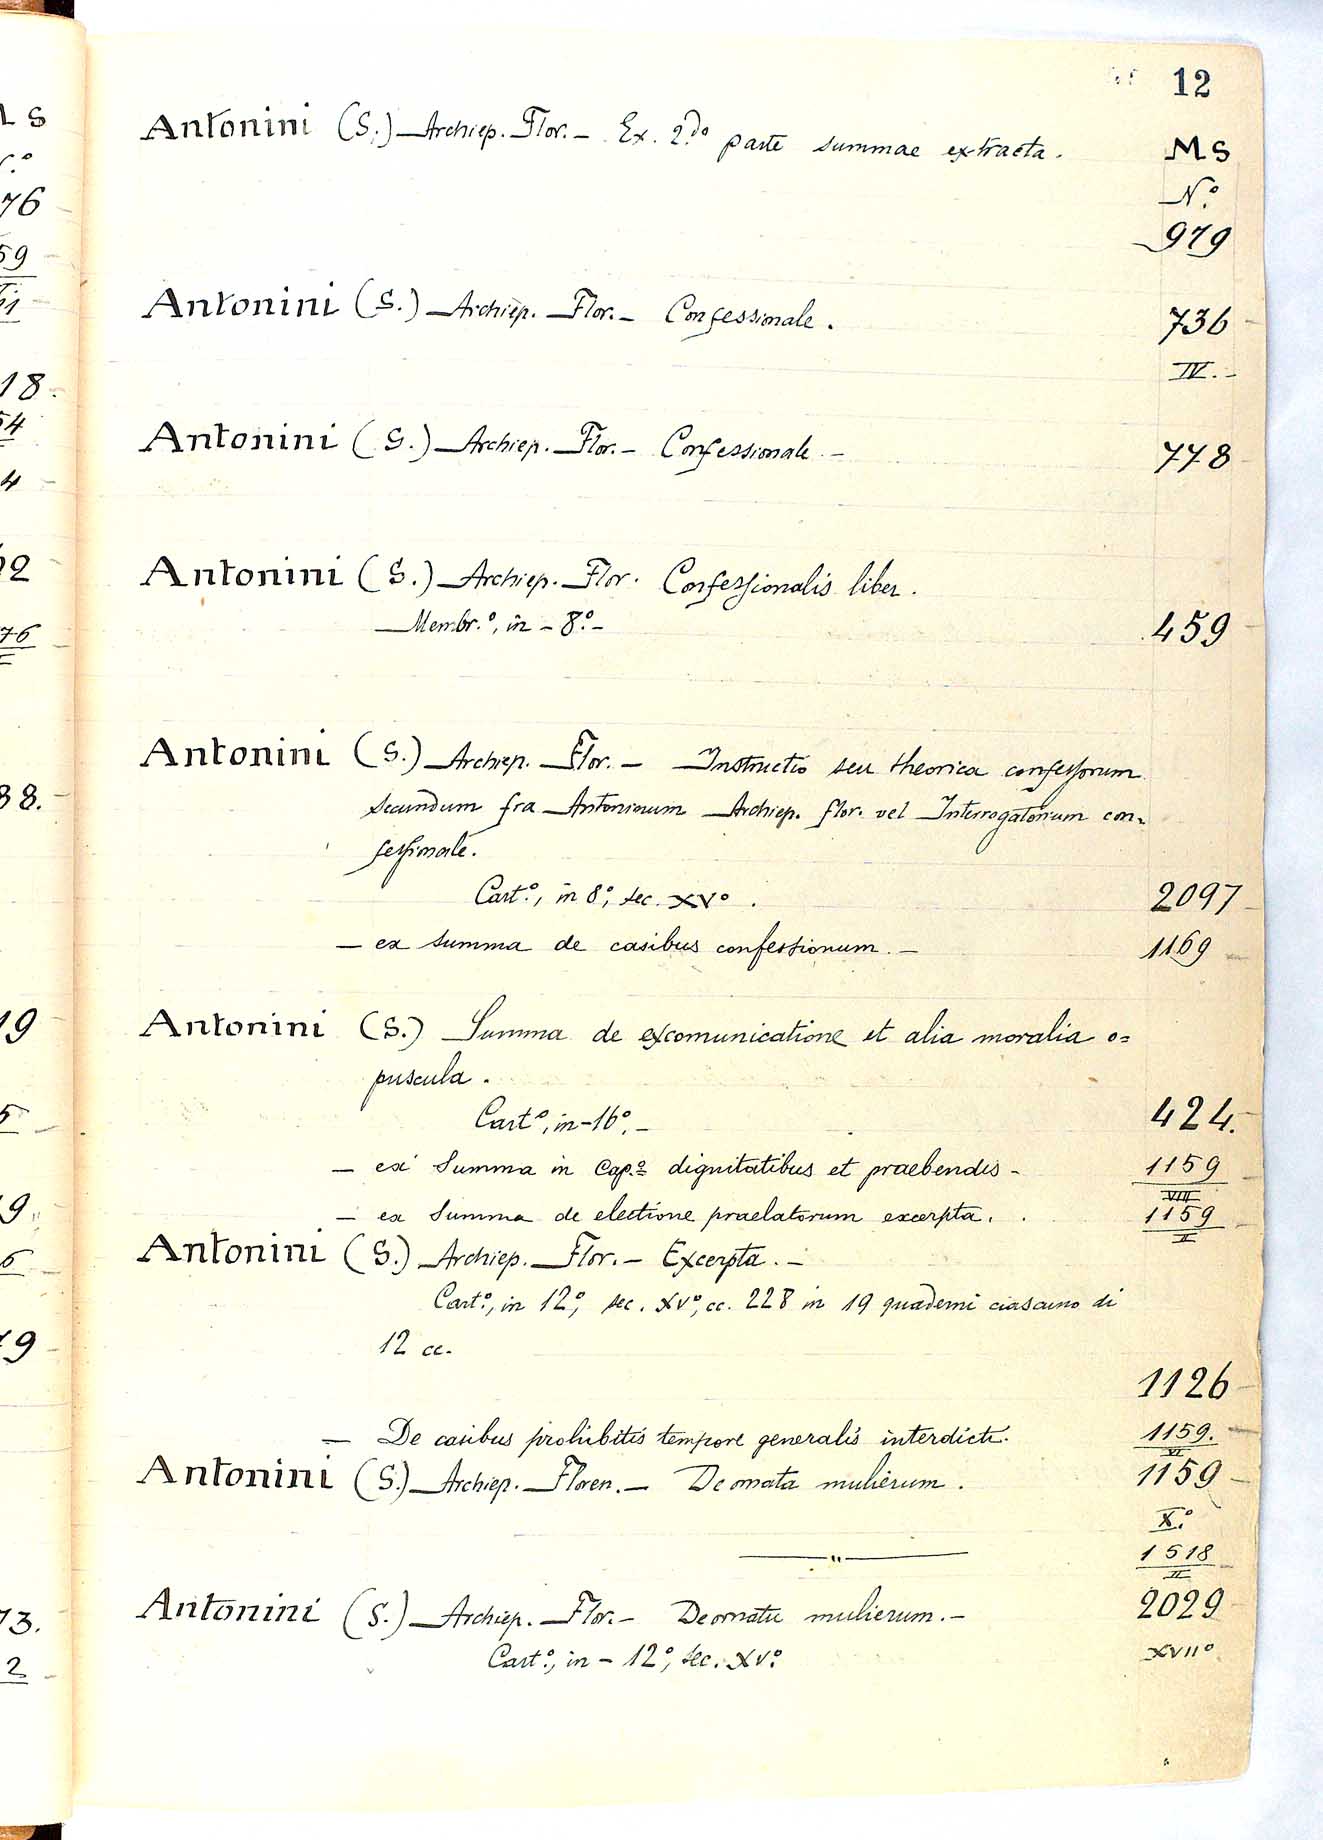 12
MS
N.º
Antonini (S.) Archiep. Flor. - Ex. 2.do parte summae extracta.
979
Antonini (S.) Archiep. Flor. - Confessionale.
736
IV.-
Antonini (S.) Archiep. Flor. - Confessionale -
778
Antonini (S.) Archiep. Flor. Confessionalis liber.
Membr.º, in - 8.º -
459
Antonini (S.) Archiep. Flor. - Instructio seu theorica confessorum
secundum fra Antoninum Archiep. flor. vel Interrogatorium con=
fessionale.
Cart.º, in 8º, sec. XVº.
2097
- ex summa de casibus confessionum. -
1169
Antonini (S.) Summa de excomunicatione et alia moralia o=
puscula.
Cart.º, in - 16º. -
424.
- ex Summa in Cap.º dignitatibus et praebendis -
1159
VIII
- ex Summa de electione praelatorum excerpta.
1159
II
Antonini (S.) Archiep. Flor. - Excerpta. -
Cart.º, in 12º, sec. XVº, cc. 228 in 19 quaderni ciascuno di
12 cc.
1126
- De casibus prohibitis tempore generalis interdicti.
1159.
VI
Antonini (S.) Archiep. Floren. - De ornata mulierum.
1159
X.º
1518
II
Antonini (S.) Archiep. Flor. - De ornatu mulierum. -
2029
Cart.º, in - 12º, sec. XVº.
XVIIº